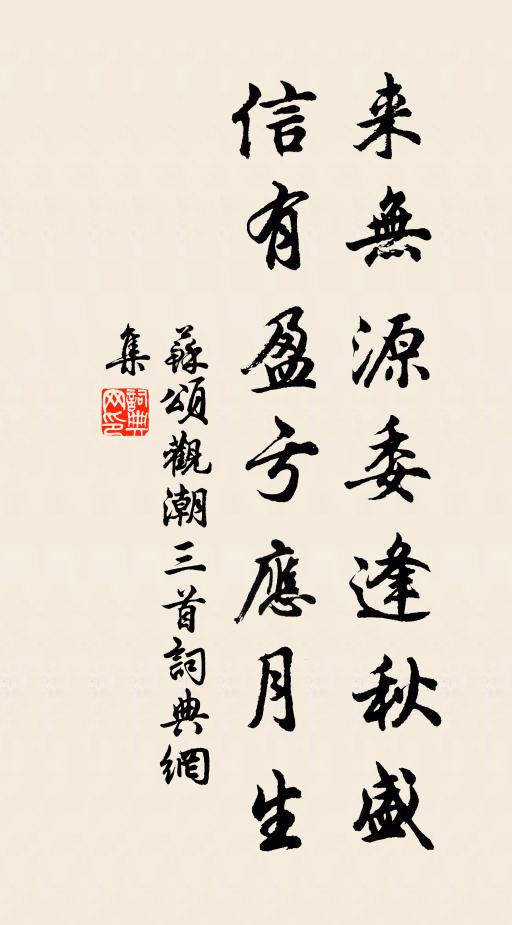 来無源委逢秋盛
信有盈亏應月生
蘇頌觀潮三首詞典網
集
詞典
网印